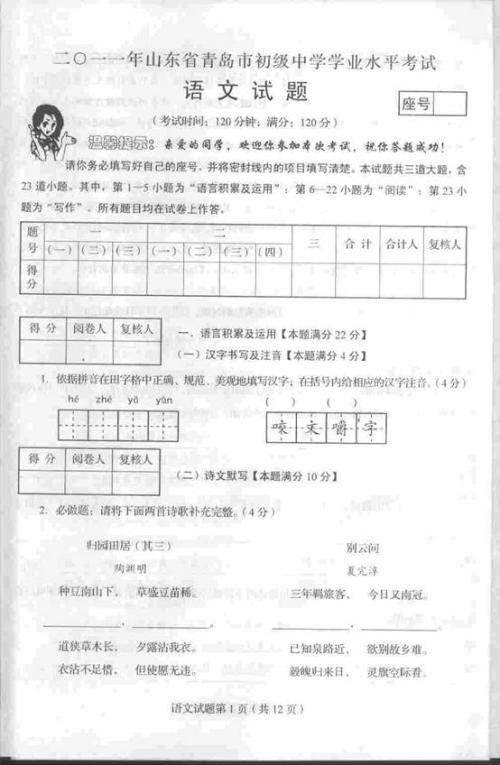 二〇一一年山东省青岛市初级中学学业水平考试
语文试题
座号
(考试时间：120分钟；满分：120分)
温馨提示：亲爱的同学，欢迎你参加本次考试，祝你答题成功！
请你务必填写好自己的座号，并将密封线内的项目填写清楚。本试题共三道大题，含
23道小题。其中，第1—5小题为“语言积累及运用”；第6—22小题为“阅读”；第23小
题为“写作”。所有题目均在试卷上作答。
题号 一 二 三 合计 合计人 复核人
(一) (二) (三) (一) (二) (三) (四)
得分
得分 阅卷人 复核人
一、语言积累及运用【本题满分22分】
(一)汉字书写及注音【本题满分4分】
1. 依据拼音在田字格中正确、规范、美观地填写汉字；在括号内给相应的汉字注音。(4分)
hé zhé yǎ yùn ( ) ( )
咬文嚼字
得分 阅卷人 复核人
(二)诗文默写【本题满分10分】
2. 必做题：请将下面两首诗歌补充完整。(4分)
归园田居(其三) 别云间
陶渊明 夏完淳
种豆南山下，草盛豆苗稀。 三年羁旅客，今日又南冠。
________，________。 ________，________。
道狭草木长，夕露沾我衣。 已知泉路近，欲别故乡难。
衣沾不足惜，但使愿无违。 毅魄归来日，灵旗空际看。
语文试题第1页(共12页)